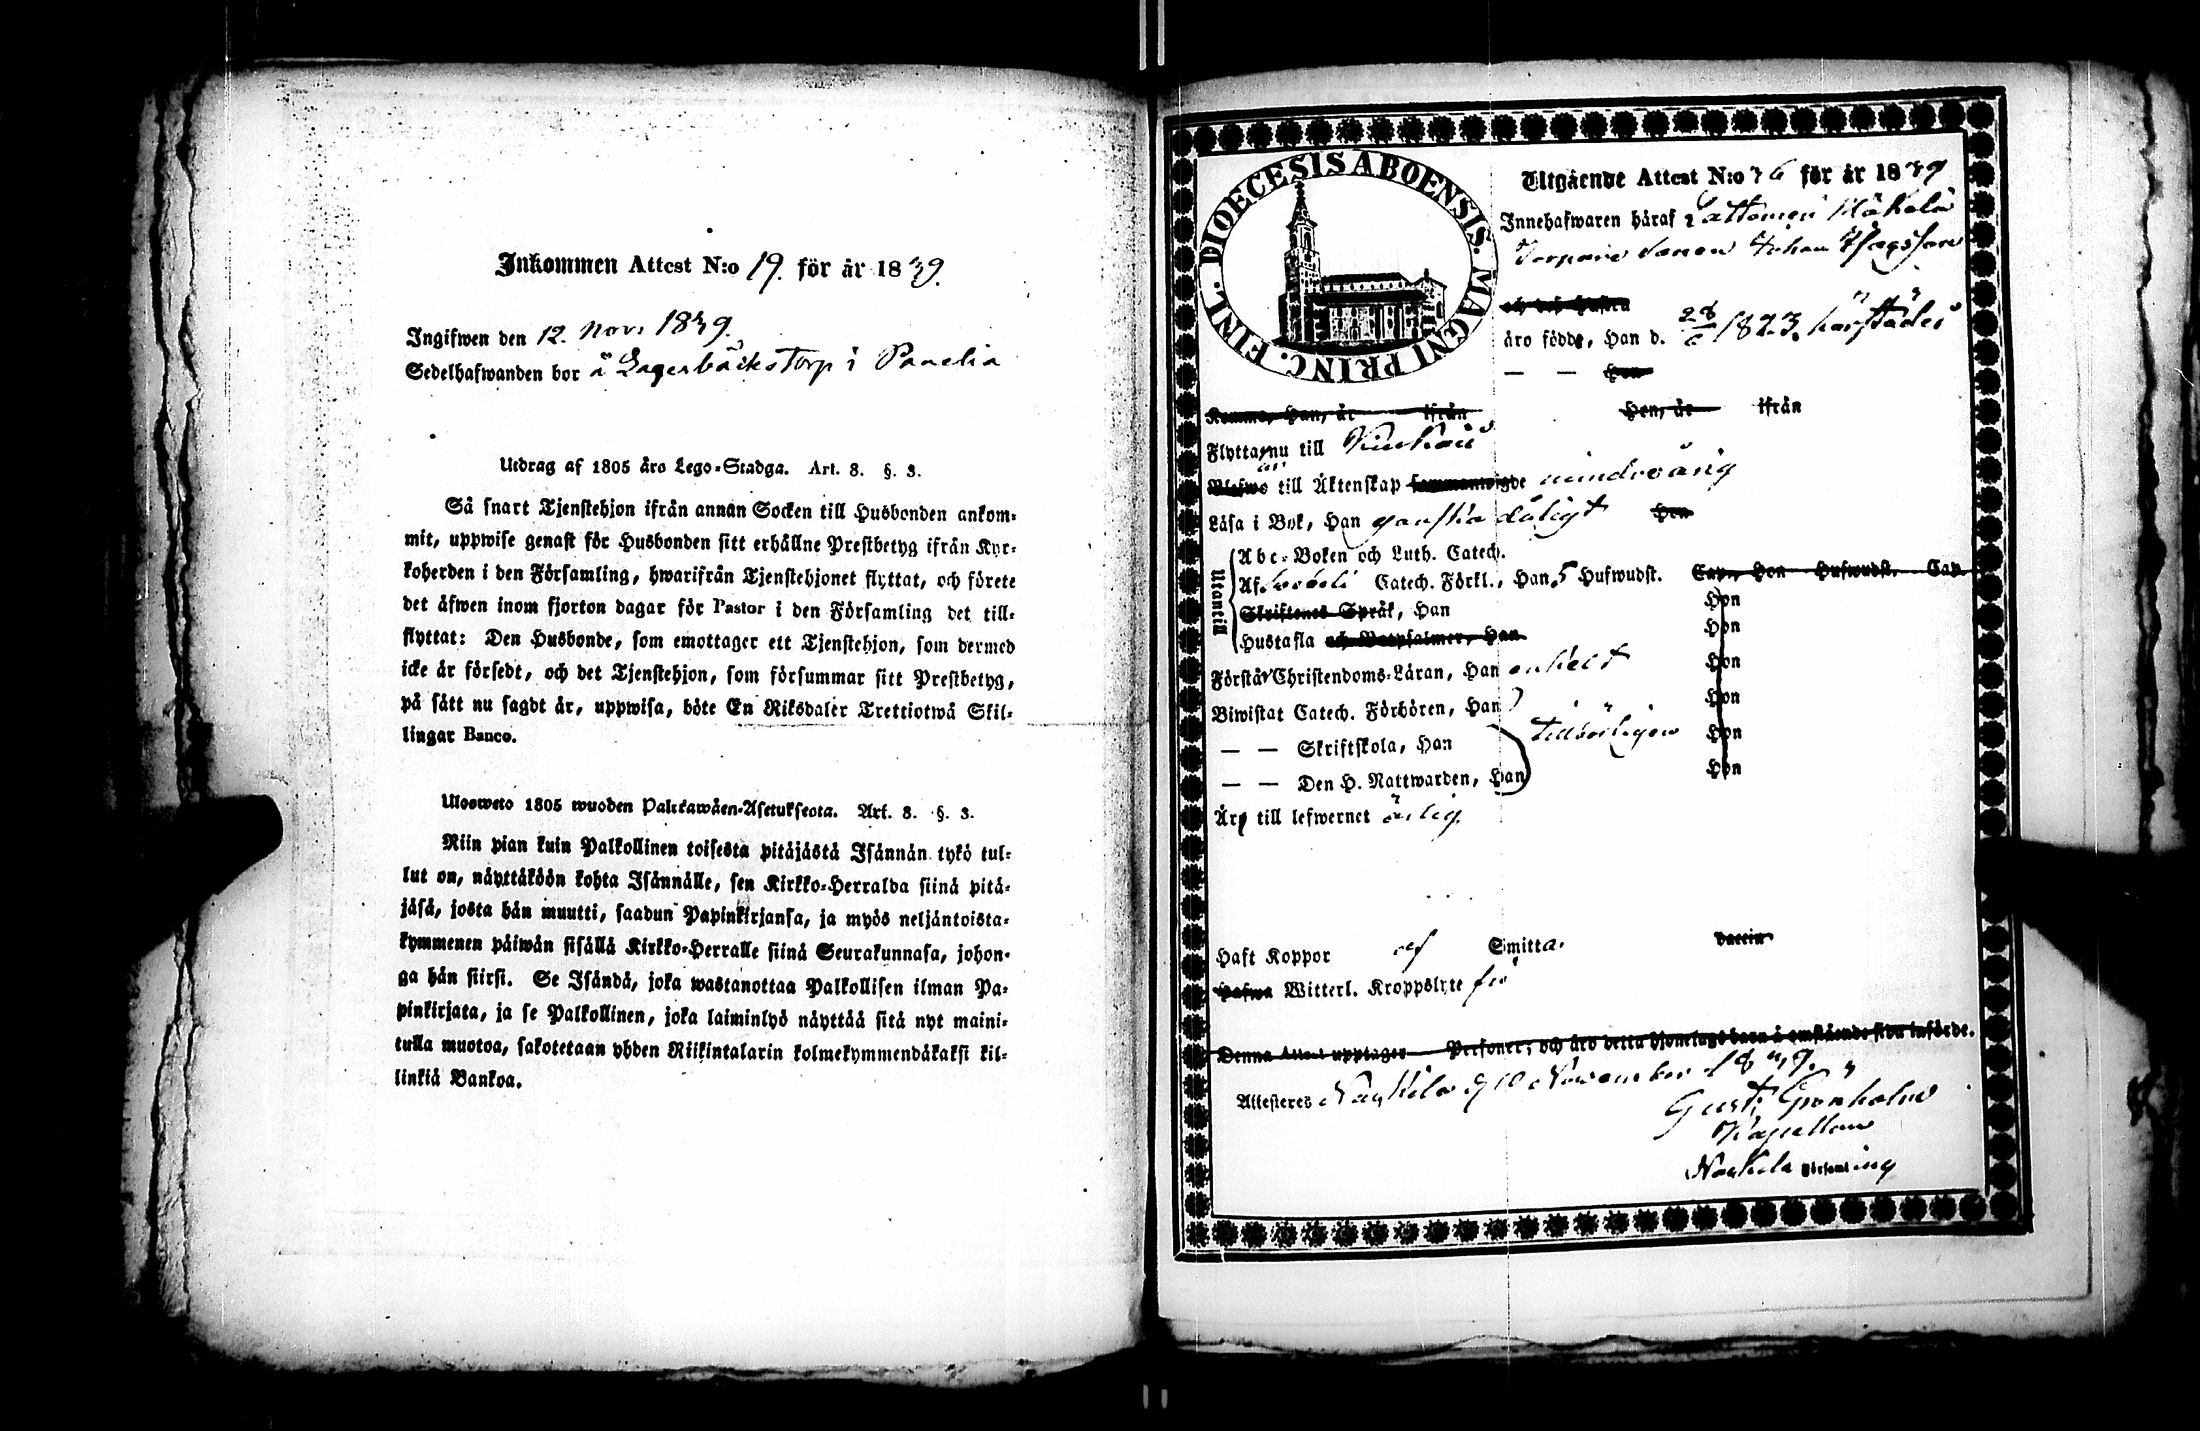 Inkommen Attest N:o 19. för år 1839.
Ingifwen den 12. Nov. 1839.
Sedelhafwanden bor å Lagerbäcks torp i Panelia
Utdrag af 1805 års Lego-Stadga. Art. 8. §. 3.
Så snart Tjenstehjon ifrån annan Socken till Husbonden ankom-
mit, uppwise genast för Husbonden sitt erhållne Prestbetyg ifrån Kyr-
koherden i den Församling, hwarifrån Tjenstehjonet flyttat, och förete
det äfwen inom fjorton dagar för Pastor i den Församling det till-
flyttat: Den Husbonde, som emottager ett Tjenstehjon, som dermed
icke är försedt, och det Tjenstehjon, som försummar sitt Prestbetyg,
på sätt nu sagdt är, uppwisa, böte En Riksdaler Trettiotwå Skil-
lingar Banco.
Ulosweto 1805 wuoden Palckawäen-Asetuksesta. Art. 8. §. 3.
Niin pian kuin Palkollinen toisesta pitäjästä Isännän tykö tul-
lut on, näyttäköön kohta Isännälle, sen Kirkko-Herralda siinä pitä-
jäsä, josta hän muutti, saadun Papinkirjansa, ja myös neljäntoista-
kymmenen päiwän sisällä Kirkko-Herralle siinä Seurakunnasa, johon-
ga hän siirsi. Se Isändä, joka wastanottaa Palkollisen ilman Pa-
pinkirjata, ja se Palkollinen, joka laiminlyö näyttää sitä nyt maini-
tulla muotoa, sakotetaan yhden Riikintalarin kolmekymmendäkaksi kil-
linkiä Bankoa.
DIOECESIS ABOENSIS. MAGNI PRINC. FINL.
Utgående Attest N:o 76 för år 1839
Innehafwaren häraf Mäkelä
Torpare sonen Johan
och dess hustru
äro födde, Han d. 28/6 1823. härstädes
— — Hon
Komne, Han, år ifrån Hon, år ifrån
Flytta nu till Kiukais
är
Blefwo till Äktenskap sammanwigde minderårig
Läsa i Bok, Han ganska dåligt Hon
Utantill
Abc-Boken och Luth. Catech.
Af Swebelii Catech. Förkl., Han 5 Hufwudst. Cap., Hon Hufwudst. Cap.
Skriftenes Språk, Han Hon
Hustafla och Botpsalmer, Han Hon
Förstår Christendoms-Läran, Han enkelt Hon
Biwistat Catech. Förhören, Han Hon
— — Skriftskola, Han tillbörligen Hon
— — Den H. Nattwarden, Han Hon
Äro till lefwernet ärlig.
Haft Koppor af Smitta. Vaccin
Hafwa Witterl. Kroppslyte fri
Denna Attest upptager Personer; och äro detta hjonelags barn å omstående sida införde.
Attesteres Nakkila d 10 November 1839.
Gust. Grönholm
Kapellan
Nakkila Församling